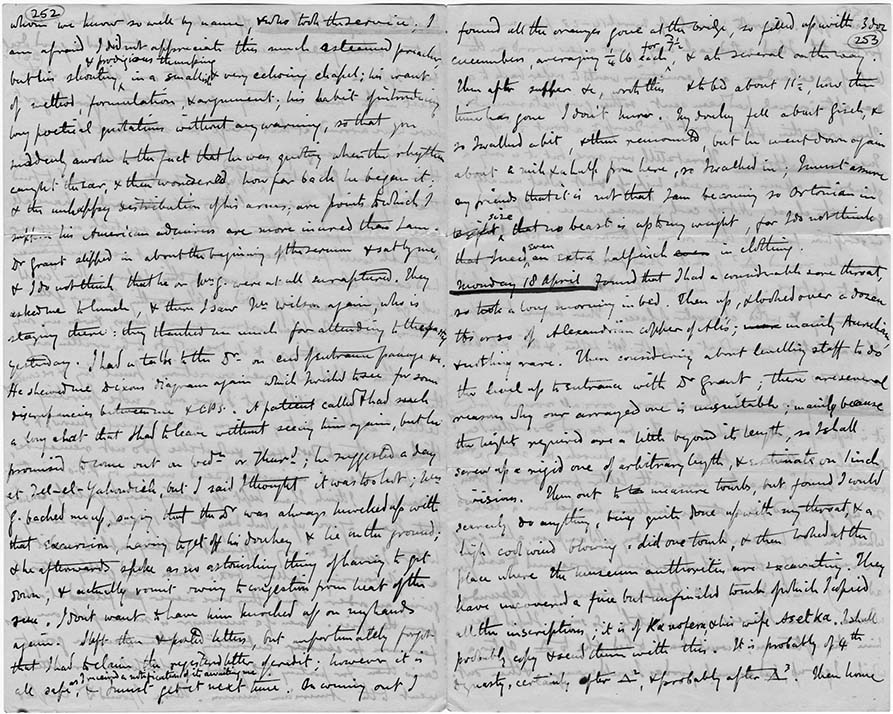 252
whom we know so well by name, & who took the service; I
am afraid I did not appreciate this much esteemed preacher
but his shouting & prodigious thumping in a smallish & very echoing chapel; his want
of method, formulation & argument; his habit of introducing
long poetical quotations without any warning, so that you
suddenly awoke to the fact that he was quoting when the rhythm
caught the ear, & then wondered how far back he began it;
& the unhappy distribution of his arms; are points to which I
suppose his American admirers are more inured than I am.
Dr Grant slipped in about the beginning of the sermon & sat by me,
& I do not think that he or Mrs G. were at all enraptured. They
asked me to lunch, & there I saw Mrs Wilson again, who is
staying there: they thanked me much for attending to the party
yesterday. I had a talk to the Dr on end of entrance passage &c.
He shewed me diagram again which I wished to see for some
discrepancies between me & C.P.S. A patient called & had such
a long chat that I had to leave without seeing him again, but he
promised to come out on Wedn or Thursd; he suggested a day
at Tel-el-Yahoudieh, but I said I thought it was too hot; Mrs
G. backed me up, saying that the Dr was always knocked up with
that excursion, having to get off his donkey & lie on the ground;
& he afterwards spoke as no astonishing thing of having to get
down, & actually vomit owing to from heat of the
sun. I don't want to have him knocked up on my hands
again. I left then & posted letters, but unfortunately forgot
that I had to claim the registered letter of credit; however it is
all safe, as I received a notification of its awaiting me & I must get it next time. On coming out I
253
found all the oranges gone at the bridge, so filled up with 3 doz
cucumbers, averaging ½ lb each, for 7½ & ate several on the way.
Then after supper &c, wrote this & to bed about 11½, how the
time has gone I don't know. My donkey fell about Gizeh, &
so I walked a bit, & then remounted, but he went down again
about a mile & a half from here, so I walked in; I must assure
my friends that it is not that I am becoming so Ortonian in
size that no beast is up to my weight, for I do not think
that I need even an extra half inch in clothing.
Monday 18 April Found that I had a considerable sore throat,
so took a long morning in bed. Then up, & looked over a dozen
lbs or so of Alexandrian copper of Ali's; mainly Aurelian
& nothing rare. Then considering about levelling staff to do
the level up to entrance with Dr Grant; there are several
reasons why our arranged one is unsuitable; mainly because
the height required are a little beyond its length, so I shall
screw up a rigid one of arbitrary length, & estimate on 1 inch
divisions. Then out to measure tombs, but found I could
scarcely do anything, being quite done up with my throat, & a
high cool wind blowing, did one tomb, & then looked at the
place where the museum authorities are excavating. They
have uncovered a fine but unfinished tomb of which I copied
all the inscriptions; it is of Kanofer & his wife Asetka. I shall
probably copy & send them with this. It is probably of 4th
dynasty, certainly after Δ², & probably after Δ³. Then home